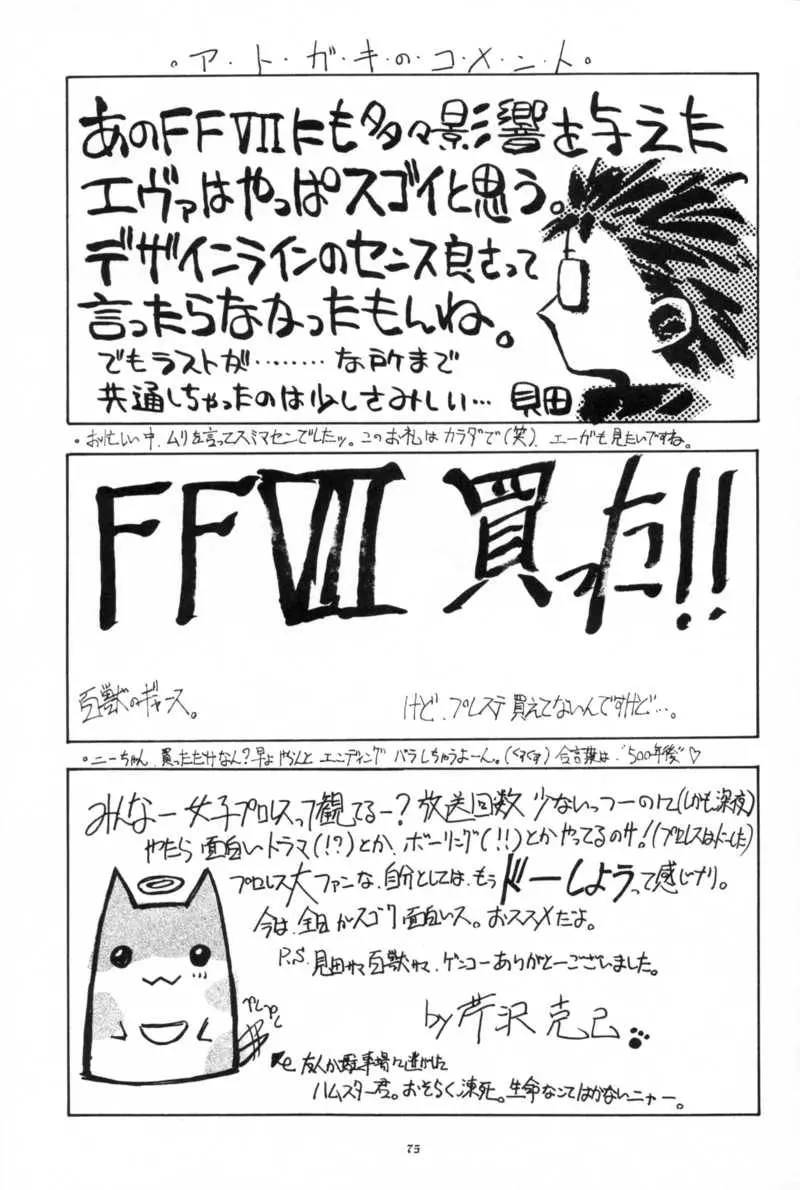 。ア・ト・ガ・キ・の・コ・メ・ン・ト。
あのFFⅦにも多々影響を与えた
エヴァはやっぱスゴイと思う。
デザインラインのセンス良さって
言ったらなかったもんね。
でもラストが………な所まで
共通しちゃったのは少しさみしい… 見田
。お忙しい中、ムリを言ってスミマセンでしたッ。このお礼はカラダで(笑)、エーガも見たいですね。
FFⅦ 買った!!
百獣のギャース。
けど、プレステ買えてないんですけど…。
。ニーちゃん、買っただけなん?早よやらんと エンディング バラしちゃうよーん。(くすくす) 合言葉は、"500年後"♡
みんなー 女子プロレスって観てるー?放送回数 少ないっつーのに(しかも深夜)
やたら 面白いドラマ(!?)とか、ボーリング(!!)とかやってるのサ!(プロレスはどーした)
プロレス大ファンな、自分としては、もう ドーしようって感じナリ。
今は、全日がスゴク面白いス。おススメだよ。
P.S. 見田サマ 百獣サマ、ゲンコーありがとーございました。
by 芹沢 克己
友人が駐車場で逃がした
ハムスター君。おそらく、凍死。生命なんてはかないニャー。
75